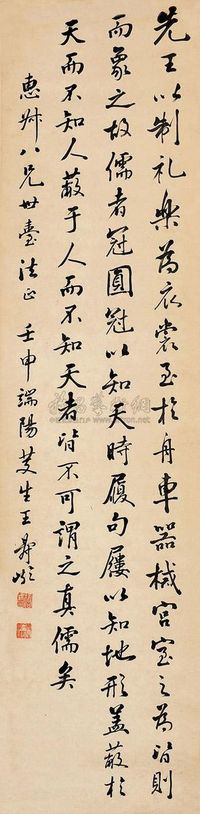 先王以制礼樂為衣裳至於舟車器械宮室之為皆則
而象之故儒者冠圓冠以知天時履句屨以知地形蓋蔽於
天而不知人蔽于人而不知天者皆不可謂之真儒矣
惠叔八兄世臺法正 壬申端陽 生王壽